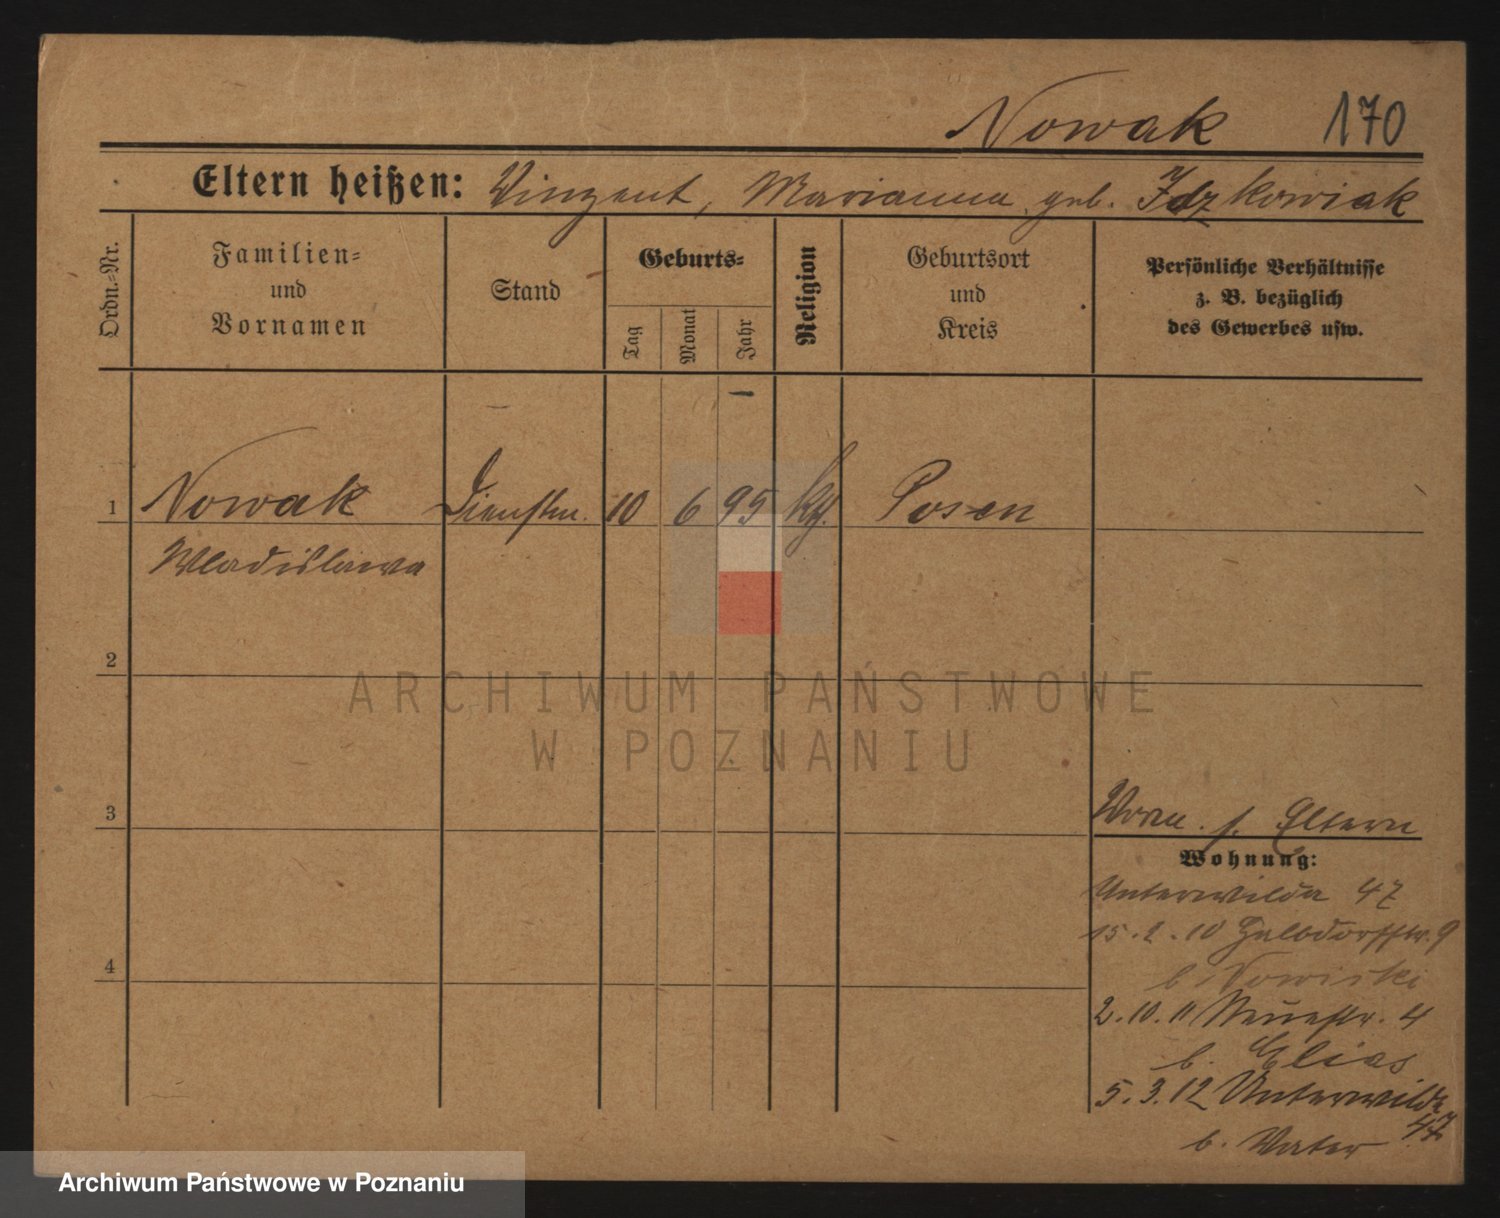 Nowak 170
Eltern heißen: Vinzent, Marianna geb. Idzkowiak
Ordn.-Nr.
Familien-
und
Vornamen
Stand
Geburts-
Tag
Monat
Jahr
Religion
Geburtsort
und
Kreis
Persönliche Verhältnisse
z. B. bezüglich
des Gewerbes usw.
1 Nowak Dienstm. 10 6 95 kth. Posen
Wladislawa
2
3
Vorm. s. Eltern
Wohnung:
Unterwilda 47
15.2.10 Halbdorfstr. 9
b Nowiski
4
2.10.11 Neuestr. 4
b. Elias
5.3.12 Unterwilda
47
b. Vater
ARCHIWUM PAŃSTWOWE
W POZNANIU
Archiwum Państwowe w Poznaniu